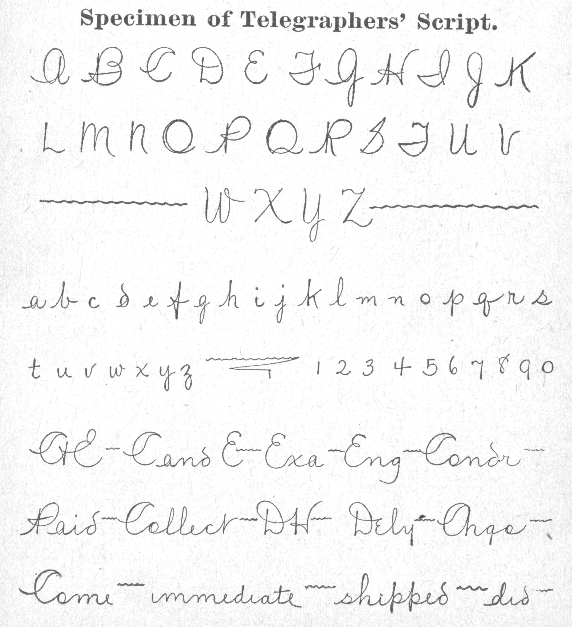 Specimen of Telegraphers' Script.
A B C D E F G H I J K
L M N O P Q R S T U V
W X Y Z
a b c d e f g h i j k l m n o p q r s
t u v w x y z 1 2 3 4 5 6 7 8 9 0
GE - Cand E - Exa - Eng - Condr -
Paid - Collect - DH - Dely - Chge -
Come - immediate - shipped - did -